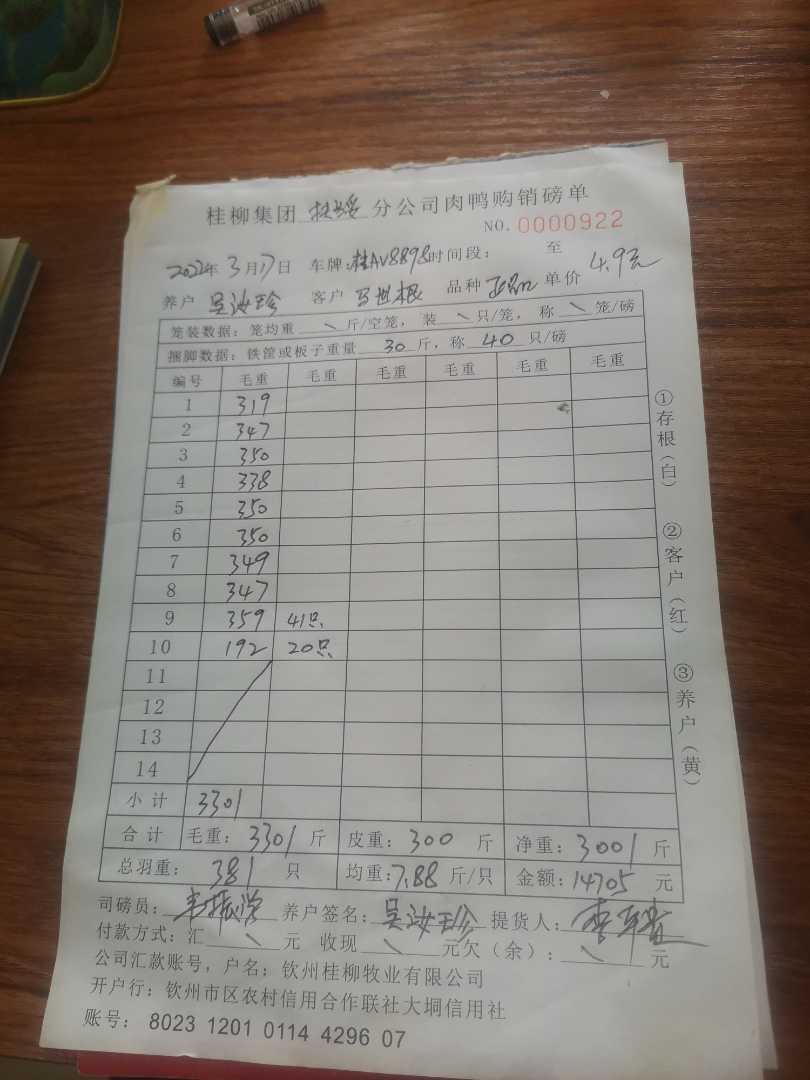 桂柳集团 扶绥 分公司肉鸭购销磅单
NO. 0000922
2022年 3月17日 车牌:桂AV8898 时间段: 至
养户 吴汝珍 客户 马世根 品种 正品 单价 4.9元
笼装数据:笼均重 \ 斤/空笼,装 \ 只/笼,称 \ 笼/磅
捆脚数据:铁筐或板子重量 30 斤,称 40 只/磅
编号 毛重 毛重 毛重 毛重 毛重 毛重
1 319
2 347
3 350
4 338
5 350
6 350
7 349
8 347
9 359 41只
10 192 20只
11
12
13
14
小计 3301
合计 毛重: 3301 斤 皮重: 300 斤 净重: 3001 斤
总羽重: 381 只 均重: 7.88 斤/只 金额: 14705 元
司磅员: 韦振 养户签名: 吴汝珍 提货人: 李
付款方式:汇 \ 元 收现 \ 元欠(余): \ 元
公司汇款账号,户名;钦州桂柳牧业有限公司
开户行:钦州市区农村信用合作联社大垌信用社
账号: 8023 1201 0114 4296 07
①存根(白) ②客户(红) ③养户(黄)